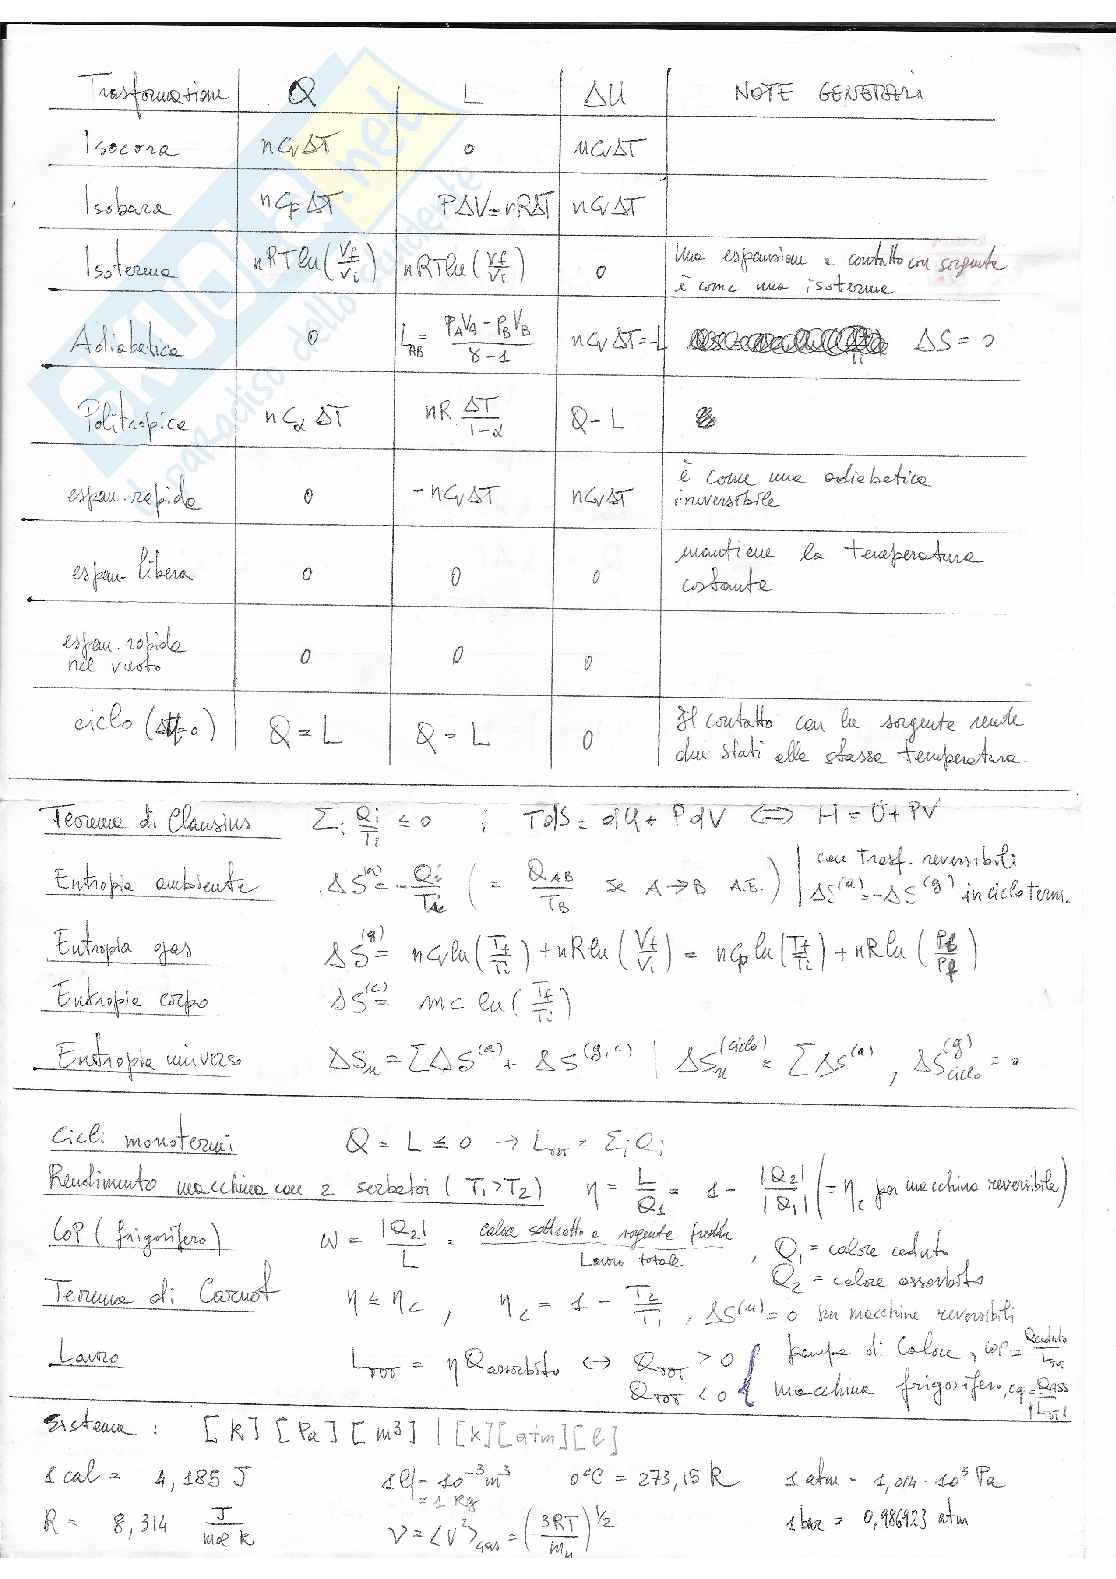 Trasformazione Q L ΔU NOTE GENERALI
Isocora nCvΔT 0 nCvΔT
Isobara nCpΔT PΔV=nRΔT nCvΔT
Isoterma nRTln(Vf/Vi) nRTln(Vf/Vi) 0 Una espansione a contatto con sorgente
è come una isoterma
Adiabatica 0 L_AB = (PAVA - PBVB)/(γ-1) nCvΔT=-L ΔS=0
Politropica nCαΔT nR ΔT/(1-α) Q-L
espan. rapida 0 -nCvΔT nCvΔT è come una adiabatica
irreversibile
espan. libera 0 0 0 mantiene la temperatura
costante
espan. rapida
nel vuoto 0 0 0
ciclo ( =0) Q=L Q-L 0 Il contatto con la sorgente rende
due stati alla stessa temperatura.
Teorema di Clausius Σi Qi/Ti ≤ 0 ; TdS = dU + PdV ⇔ H = U + PV
Entropia ambiente ΔS^(a) = - Qi/Ti ( = QAB/TB se A→B A.E. ) | con trasf. reversibili
ΔS^(a) = -ΔS^(g) in ciclo term.
Entropia gas ΔS^(g) = nCv ln(Tf/Ti) + nR ln(Vf/Vi) = nCp ln(Tf/Ti) + nR ln(Pi/Pf)
Entropia corpo ΔS^(c) = mc ln(Tf/Ti)
Entropia universo ΔSu = ΣΔS^(a) + ΔS^(g,c) | ΔSu^(ciclo) = ΣΔS^(a) , ΔS^(g)ciclo = 0
Cicli monotermi Q = L ≤ 0 → Ltot = Σi Qi
Rendimento macchina con 2 serbatoi (T1>T2) η = L/Q1 = 1 - |Q2|/|Q1| (= ηc per macchina reversibile)
COP (frigorifero) ω = |Q2|/L = calore sottratto a sorgente fredda / Lavoro totale , Q1 = calore ceduto
Q2 = calore assorbito
Teorema di Carnot η ≤ ηc , ηc = 1 - T2/T1 , ΔS^(u) = 0 per macchine reversibili
Lavoro Ltot = η Qassorbito ↔ Qtot > 0 { pompa di calore, COP = Qceduto/Ltot
Qtot < 0 { macchina frigorifero, = QASS/|Ltot|
Sistema : [K] [Pa] [m³] | [K] [atm] [l]
1 cal = 4,185 J 1l = 10⁻³ m³ 0°C = 273,15 K 1 atm = 1,014·10⁵ Pa
= 1 Kg
R = 8,314 J/mol K V = <V²>gas = (3RT/m)^1/2 1 bar = 0,986923 atm
SKUOLA.net
il paradiso dello studente